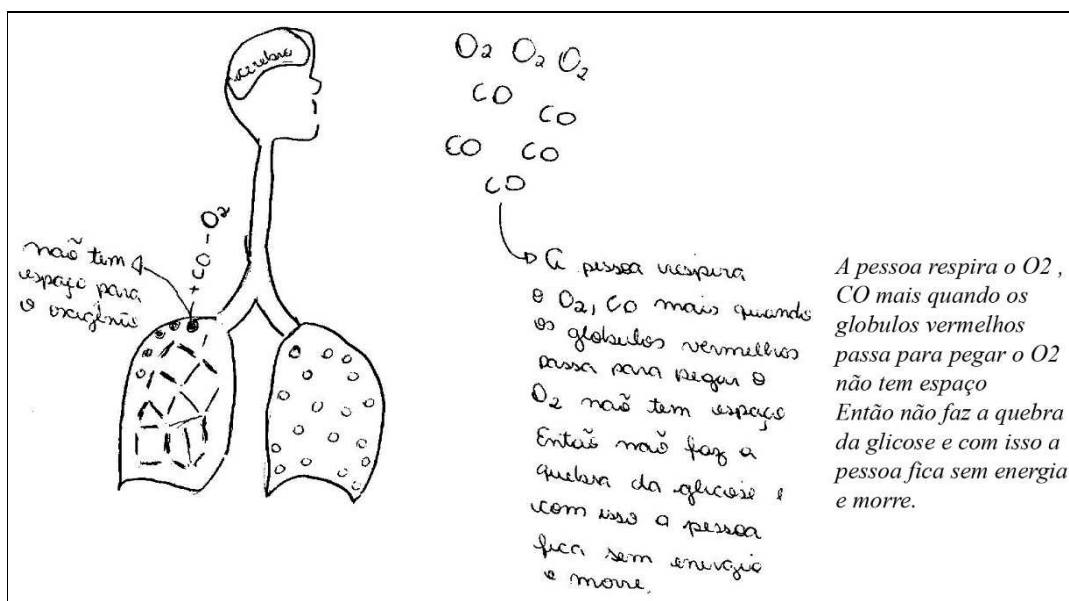 cerebro
O2 O2 O2
CO CO
CO CO
CO
+ CO - O2
não tem
espaço para
o oxigênio
A pessoa respira
o O2, CO mais quando
os globulos vermelhos
passa para pegar o
O2 não tem espaço
Então não faz a
quebra da glicose e
com isso a pessoa
fica sem energia
e morre.
A pessoa respira o O2 ,
CO mais quando os
globulos vermelhos
passa para pegar o O2
não tem espaço
Então não faz a quebra
da glicose e com isso a
pessoa fica sem energia
e morre.